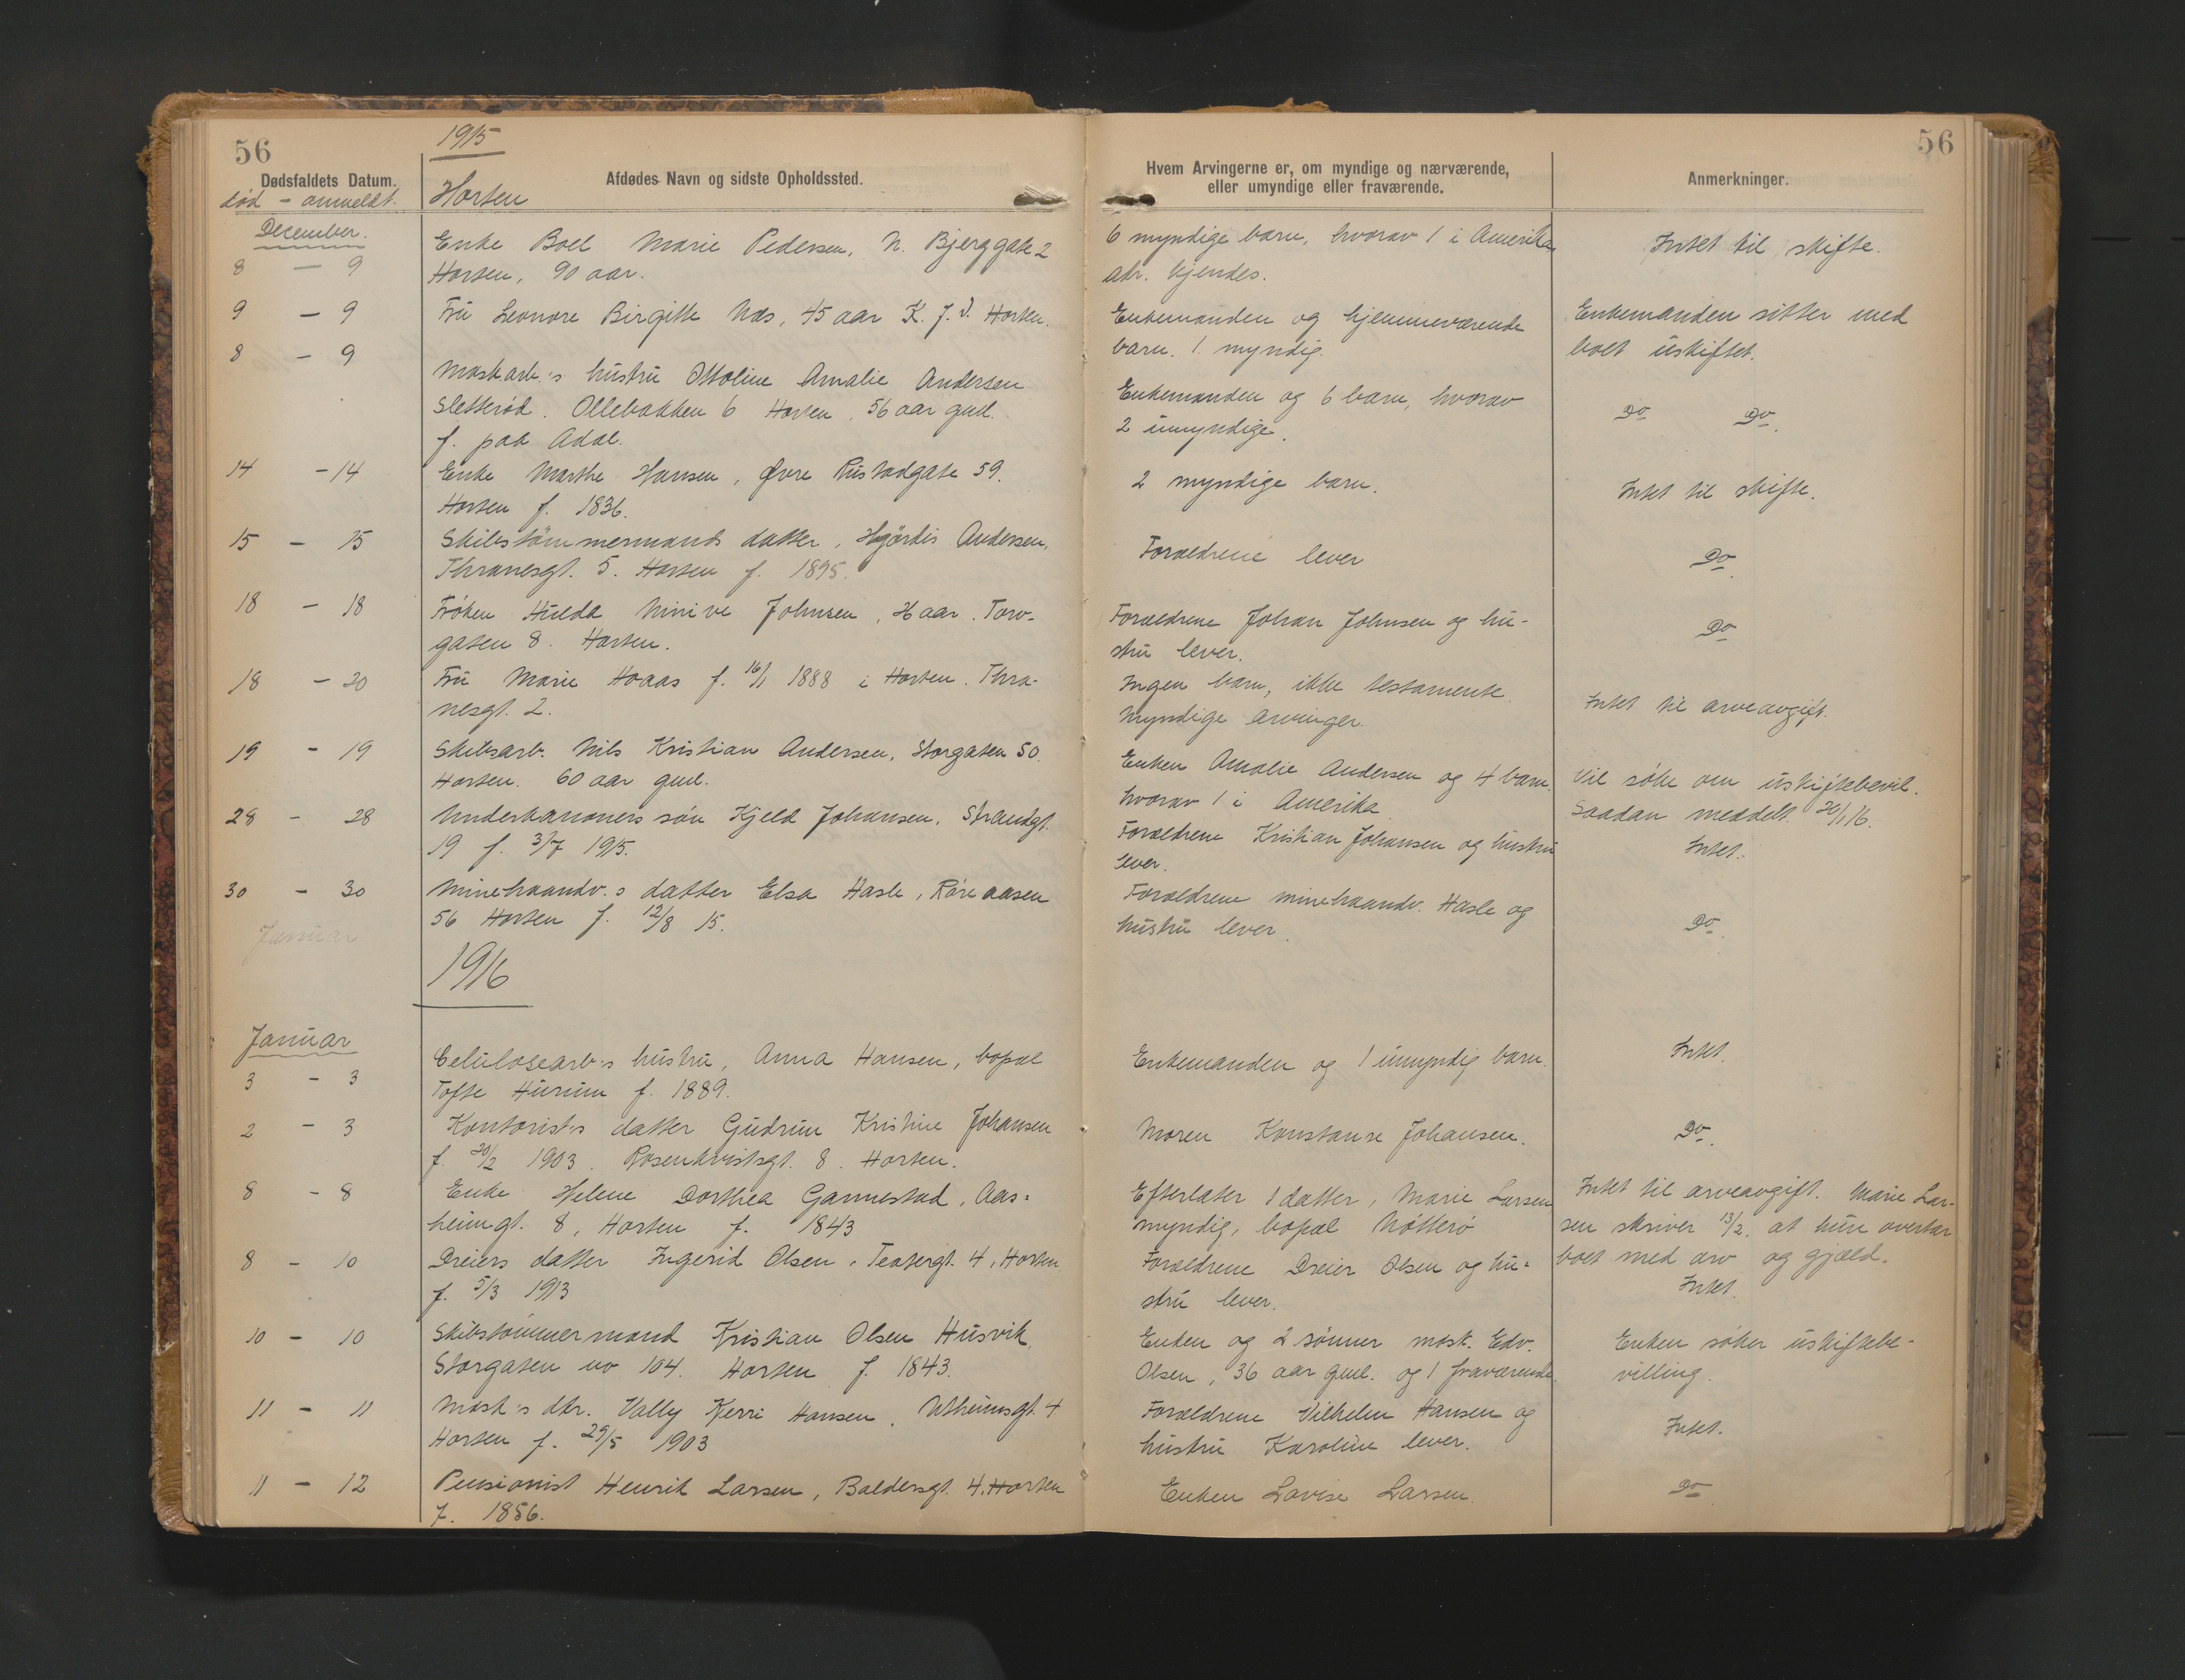 56
1915
56
Dødsfaldets Datum.
Afdødes Navn og sidste Opholdssted.
Hvem Arvingerne er, om myndige og nærværende,
eller umyndige eller fraværende.
Anmerkninger.
død - anmeldt.
Horten
December.
8 - 9
Enke Boel Marie Pedersen, N. Bjerggate 2
Horten, 90 aar.
6 myndige barn, hvorav 1 i Amerika
adr. kjendes.
Intet til skifte.
9 - 9
Fru Leonore Birgitte Næs, 45 aar K. J. V. Horten.
Enkemanden og hjemmeværende
barn. 1 myndig.
Enkemanden sitter med
boet uskiftet.
8 - 9
Maskarb.'s hustru Ottoline Amalie Andersen
Sletterød. Ollebakken 6 Horten, 56 aar gml.
f. paa Adal.
Enkemanden og 6 barn, hvorav
2 umyndige.
Do Do.
14 - 14
Enke Marthe Hansen, Øvre Rustadgate 59.
Horten f. 1836.
2 myndige barn.
Intet til skifte.
15 - 15
Skibstömmermands datter, Hjördis Andersen,
Thranesgt. 5. Horten f. 1895.
Forældrene lever
Do.
18 - 18
Fröken Hulda Ninive Johnsen, Torv-
gaten 8. Horten.
Forældrene Johan Johnsen og hu-
stru lever.
Do
18 - 20
Fru Marie Hoaas f. 16/1 1888 i Horten. Thra-
nesgt. 2.
Ingen barn, ikke testamente
Myndige arvinger.
Intet til arveavgift.
19 - 19
Skibsarb. Nils Kristian Andersen, Storgaten 50.
Horten. 60 aar gml.
Enken Amalie Andersen og 4 barn,
hvorav 1 i Amerika.
Vil söke om uskiftebevil.
Saadan meddelt 20/1 16.
28 - 28
Underkanoners sön Kjeld Johansen, Strandgt.
19 f. 3/7 1915.
Forældrene Kristian Johansen og hustru
lever.
Intet.
30 - 30
Minehaandv.s datter Elsa Hasle, Röreaasen
56 Horten f. 12/8 15.
Forældrene minehaandv. Hasle og
hustru lever.
Do.
Januar
1916
Januar
3 - 3
Celulosearb's hustru, Anna Hansen, bopæl
Tofte Hurum f. 1889.
Enkemanden og 1 umyndig barn.
Intet.
2 - 3
Kontorist's datter Gudrun Kristine Johansen
f. 20/2 1903. Rosenkvistsgt. 8. Horten.
Moren Konstanse Johansen.
Do.
8 - 8
Enke Helene Dorthea Gannestad, Aas-
heimgt. 8, Horten f. 1843
Efterlater 1 datter, Marie Larsen
myndig, bopæl Nötterö
Intet til arveavgift. Marie Lar-
sen skriver 13/2. at hun overtar
boet med arv og gjæld.
8 - 10
Dreiers datter Ingerid Olsen, Teatergt. 4, Horten
f. 5/3 1913
Forældrene Dreier Olsen og hu-
stru lever.
Intet.
10 - 10
Skibstömmermand Kristian Olsen Husvik,
Storgaten no 104. Horten f. 1843.
Enken og 2 sönner mask. Edv.
Olsen, 36 aar gml. og 1 fraværende.
Enken söker uskiftebe-
villing.
11 - 11
Mask's dtr. Vally Kerri Hansen, Utheimsgt. 4
Horten f. 29/5 1903
Forældrene Vilhelm Hansen og
hustru Karoline lever.
Intet.
11 - 12
Pensionist Henrik Larsen, Baldersgt. 4. Horten
f. 1856.
Enken Lovise Larsen.
Do